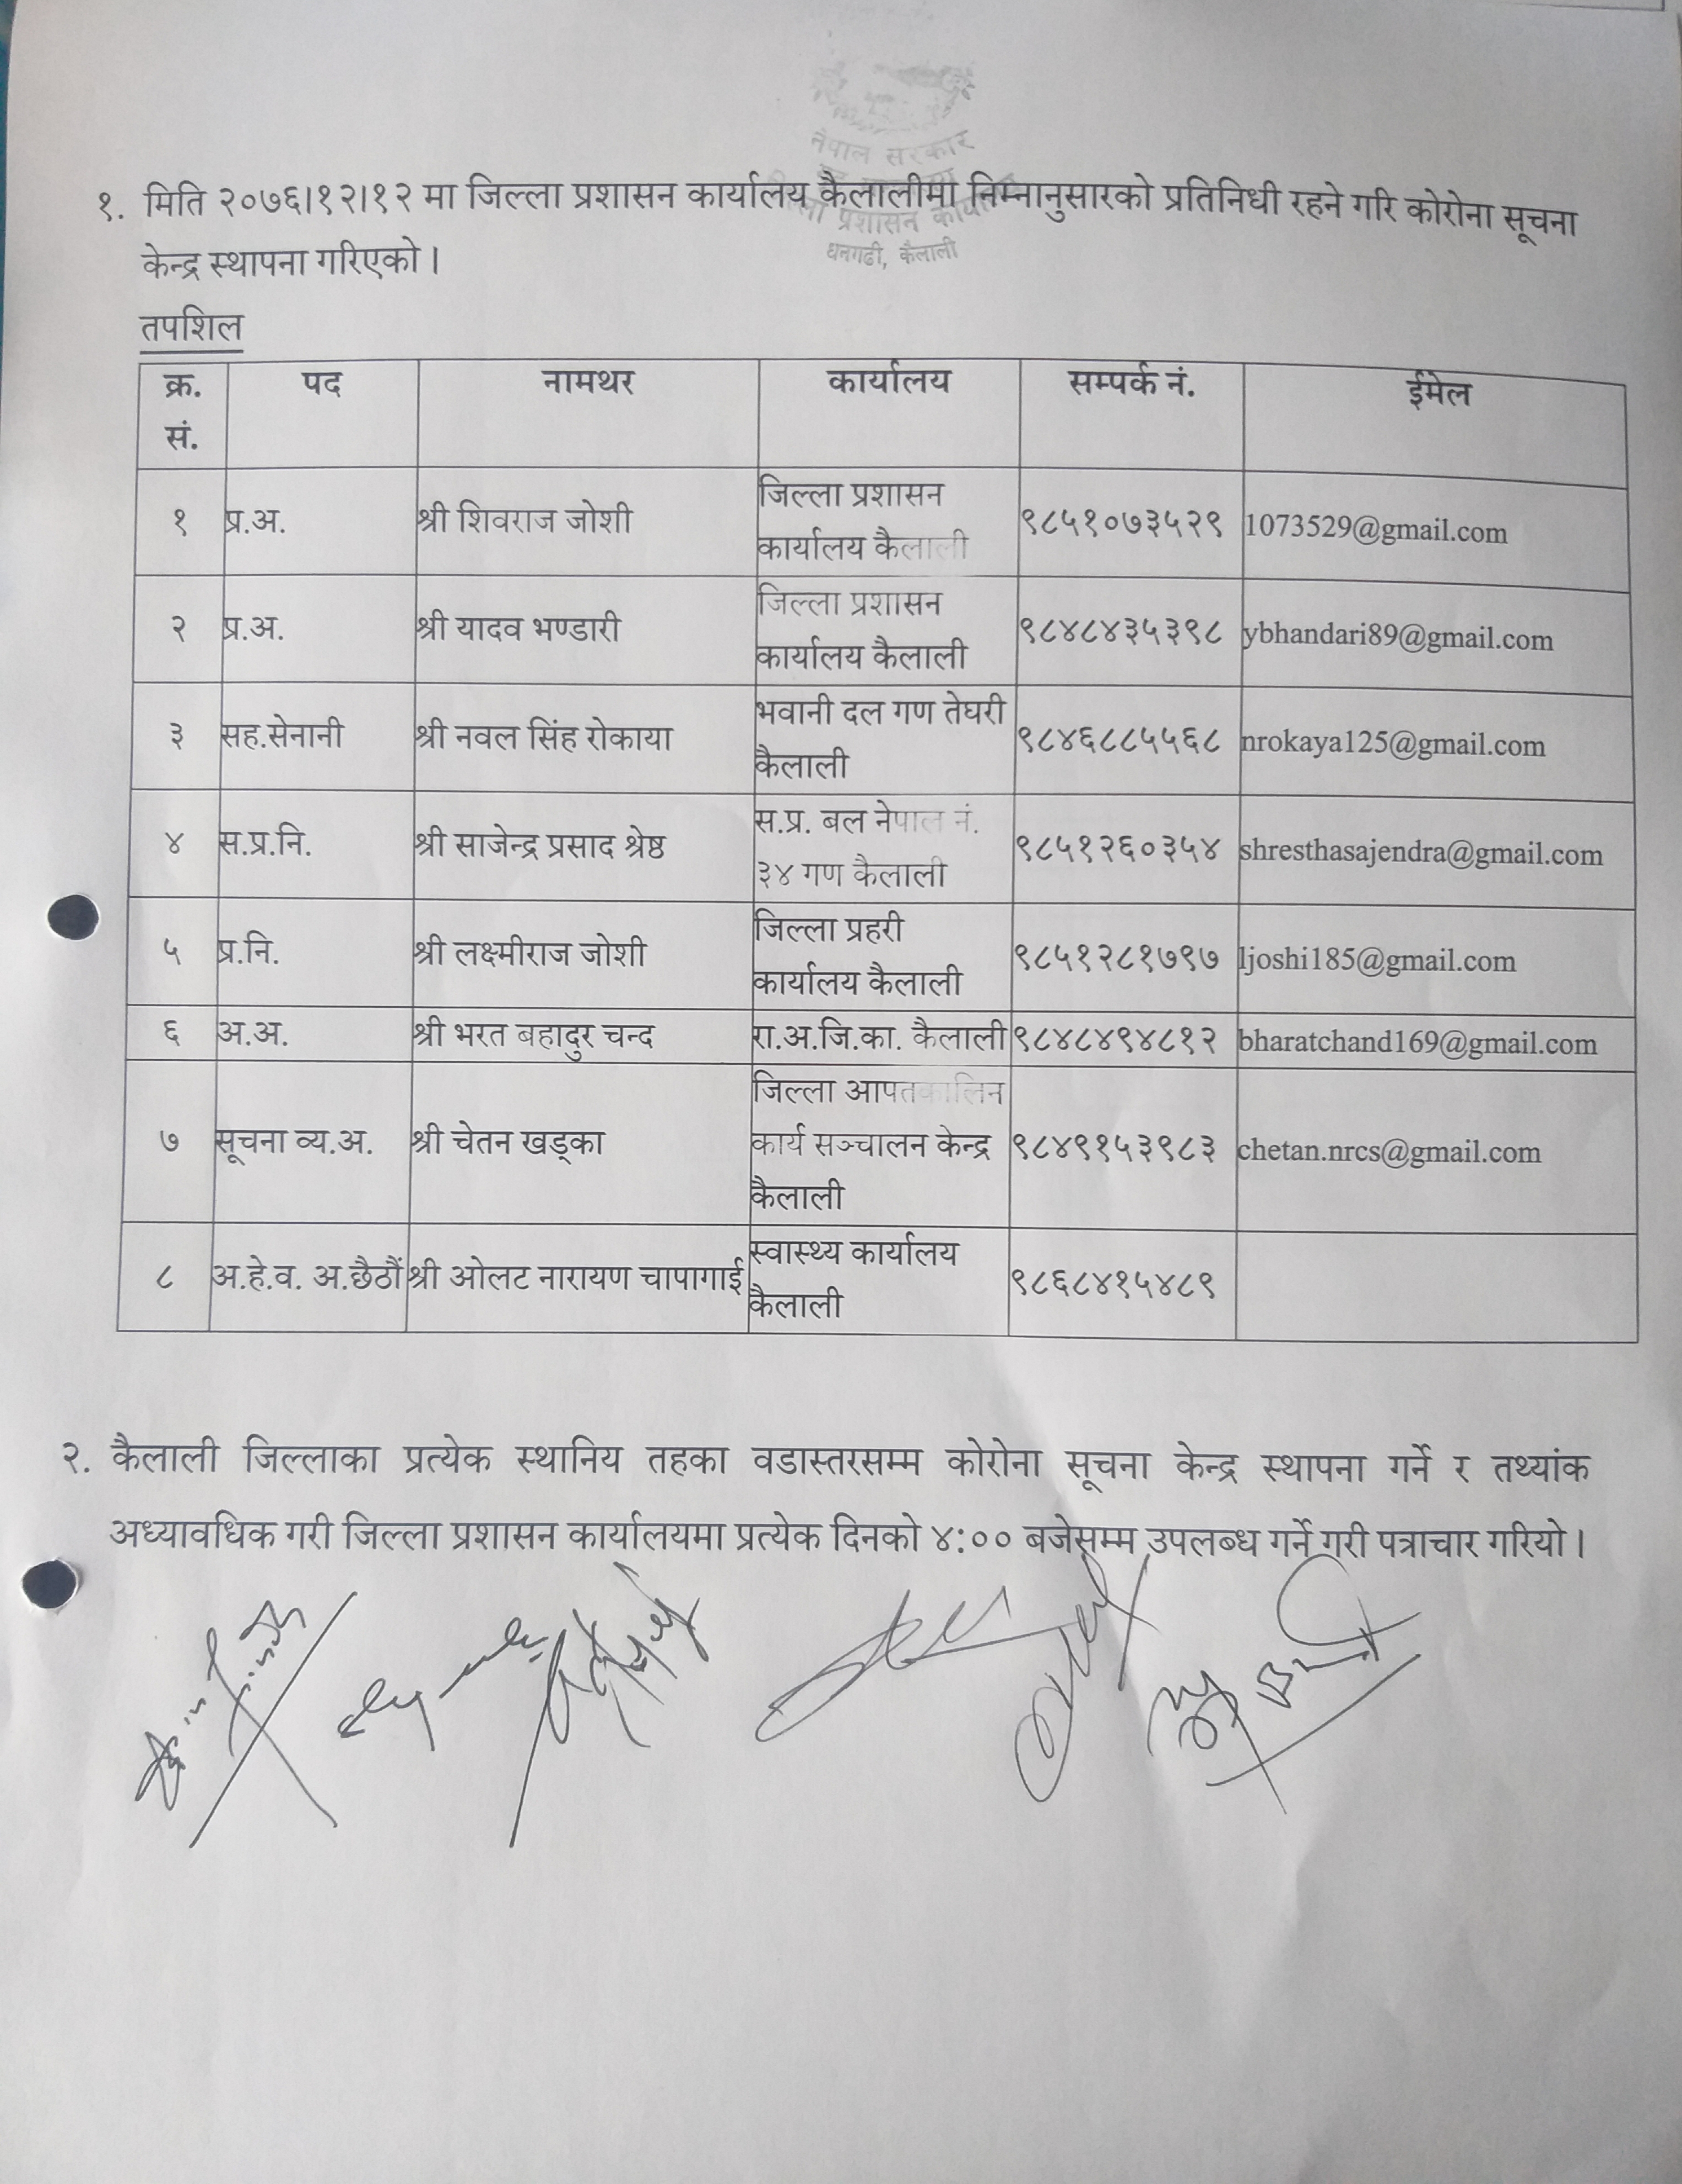 नेपाल सरकार
प्रशासन कार्या
धनगढी, कैलाली
१. मिति २०७६।१२।१२ मा जिल्ला प्रशासन कार्यालय कैलालीमा निम्नानुसारको प्रतिनिधी रहने गरि कोरोना सूचना
केन्द्र स्थापना गरिएको ।
तपशिल
क्र. सं. पद नामथर कार्यालय सम्पर्क नं. ईमेल
१ प्र.अ. श्री शिवराज जोशी जिल्ला प्रशासन कार्यालय कैलाली ९८५१०७३५२९ 1073529@gmail.com
२ प्र.अ. श्री यादव भण्डारी जिल्ला प्रशासन कार्यालय कैलाली ९८४८४३५३९८ ybhandari89@gmail.com
३ सह.सेनानी श्री नवल सिंह रोकाया भवानी दल गण तेघरी कैलाली ९८४६८८५५६८ nrokaya125@gmail.com
४ स.प्र.नि. श्री साजेन्द्र प्रसाद श्रेष्ठ स.प्र. बल नेपाल नं. ३४ गण कैलाली ९८५१२६०३५४ shresthasajendra@gmail.com
५ प्र.नि. श्री लक्ष्मीराज जोशी जिल्ला प्रहरी कार्यालय कैलाली ९८५१२८१७९७ ljoshi185@gmail.com
६ अ.अ. श्री भरत बहादुर चन्द रा.अ.जि.का. कैलाली ९८४८४९४८१२ bharatchand169@gmail.com
७ सूचना व्य.अ. श्री चेतन खड्का जिल्ला आपतकालिन कार्य सञ्चालन केन्द्र कैलाली ९८४९१५३९८३ chetan.nrcs@gmail.com
८ अ.हे.व. अ.छैठौं श्री ओलट नारायण चापागाई स्वास्थ्य कार्यालय कैलाली ९८६८४१५४८९
२. कैलाली जिल्लाका प्रत्येक स्थानिय तहका वडास्तरसम्म कोरोना सूचना केन्द्र स्थापना गर्ने र तथ्यांक
अध्यावधिक गरी जिल्ला प्रशासन कार्यालयमा प्रत्येक दिनको ४:०० बजेसम्म उपलब्ध गर्ने गरी पत्राचार गरियो ।